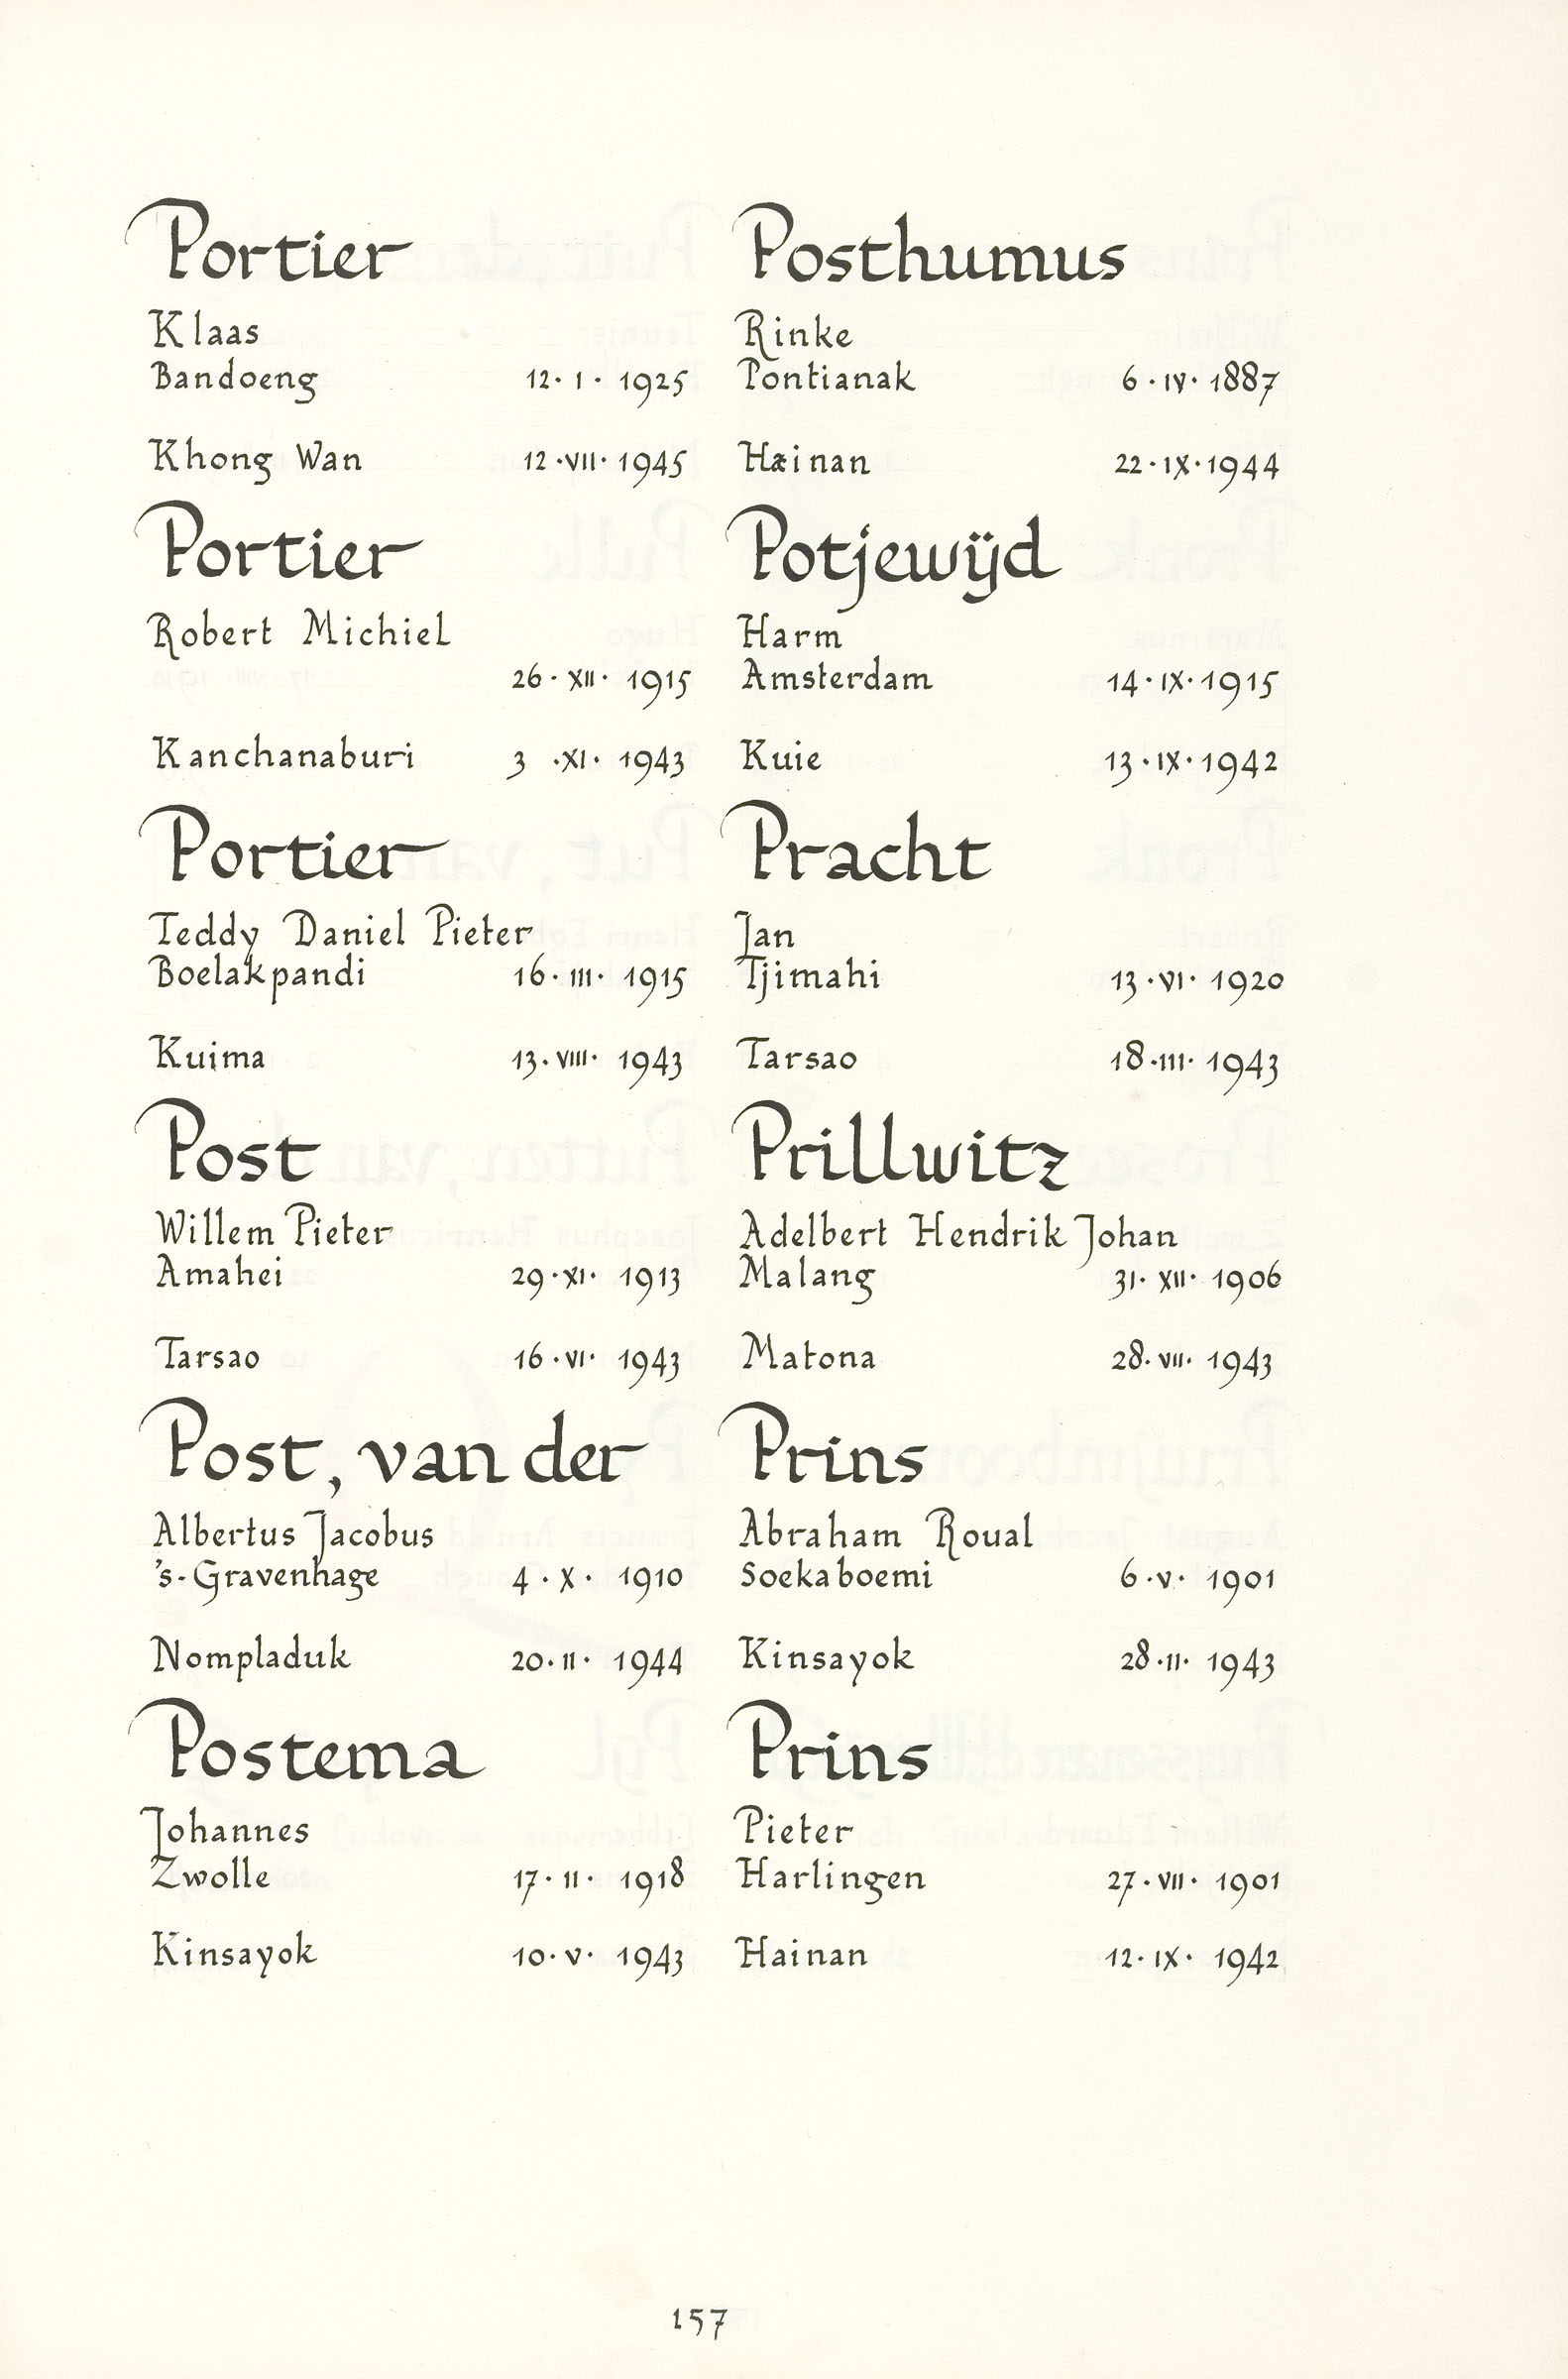 Portier
Klaas
Bandoeng 12·I·1925
Khong Wan 12·VII·1945
Portier
Robert Michiel
26·XII·1915
Kanchanaburi 3·XI·1943
Portier
Teddy Daniel Pieter
Boelakpandi 16·III·1915
Kuima 13·VIII·1943
Post
Willem Pieter
Amahei 29·XI·1913
Tarsao 16·VI·1943
Post, van der
Albertus Jacobus
's-Gravenhage 4·X·1910
Nompladuk 20·II·1944
Postema
Johannes
Zwolle 17·II·1918
Kinsayok 10·V·1943
Posthumus
Rinke
Pontianak 6·IV·1887
Hainan 22·IX·1944
Potjewijd
Harm
Amsterdam 14·IX·1915
Kuie 13·IX·1942
Pracht
Jan
Tjimahi 13·VI·1920
Tarsao 18·III·1943
Prillwitz
Adelbert Hendrik Johan
Malang 31·XII·1906
Matona 28·VII·1943
Prins
Abraham Roual
Soekaboemi 6·V·1901
Kinsayok 28·II·1943
Prins
Pieter
Harlingen 27·VII·1901
Hainan 12·IX·1942
157